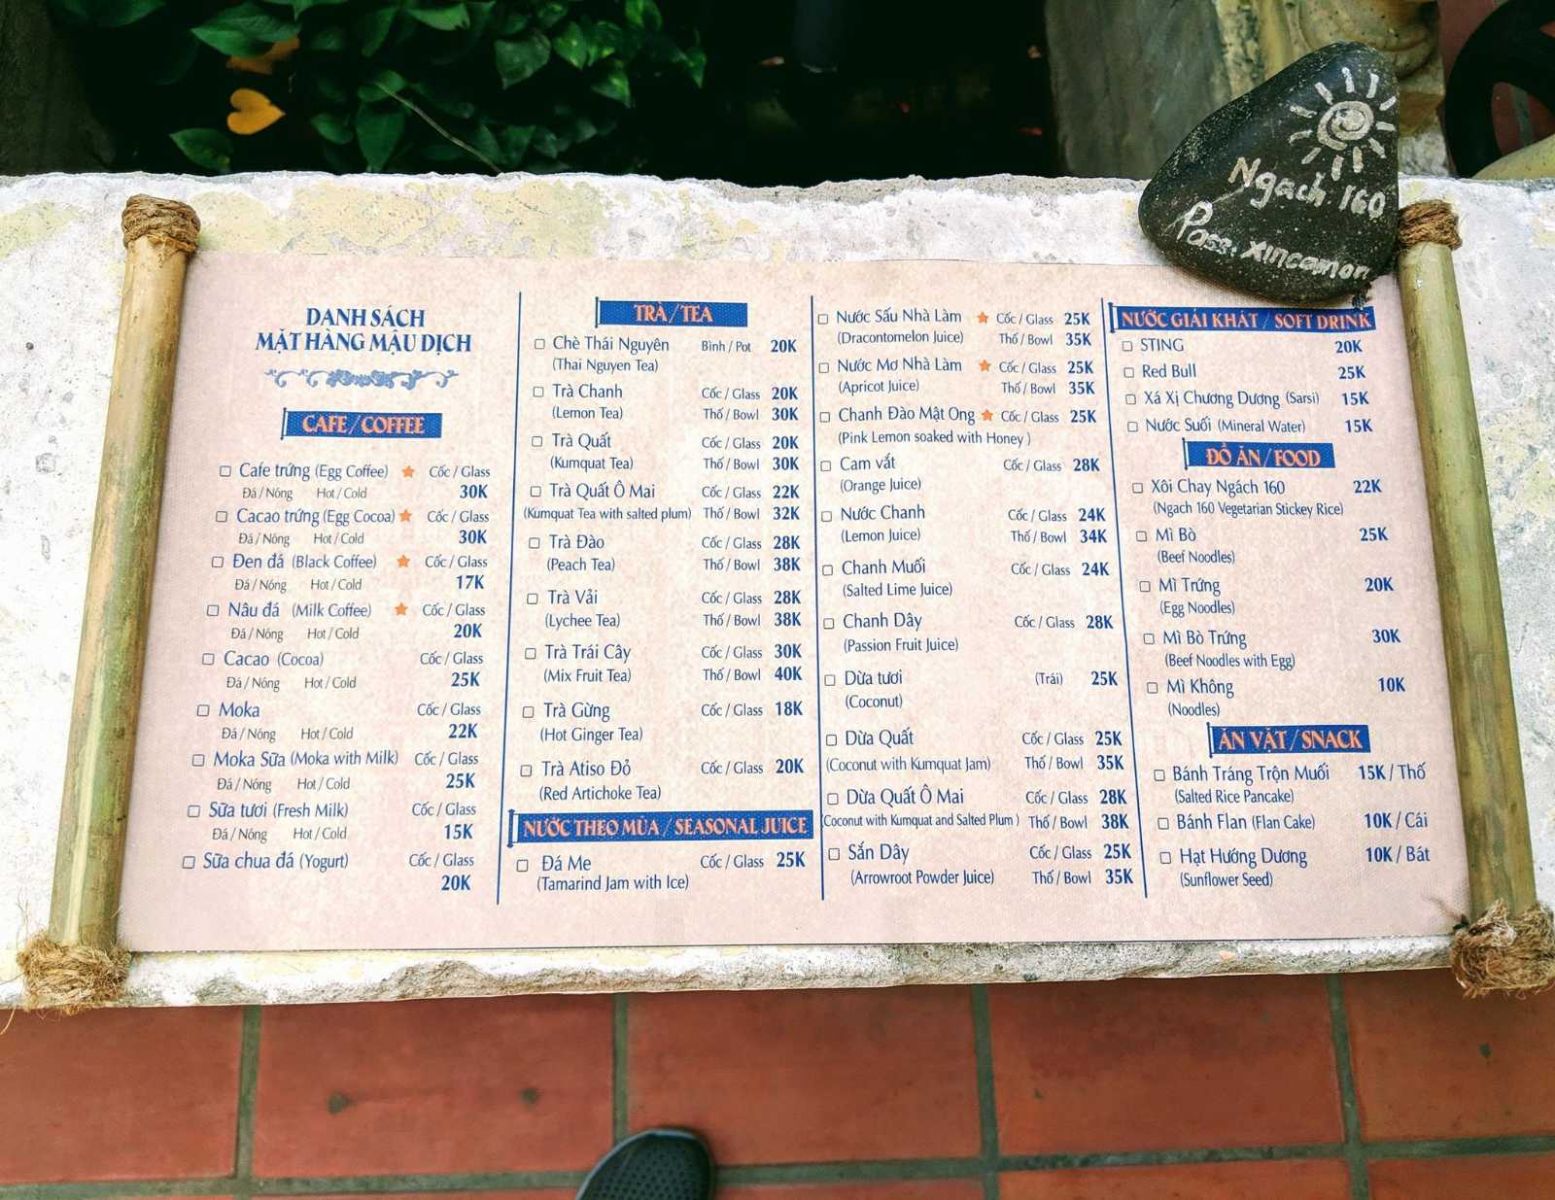 Ngach 160
Pass: xincamon
DANH SÁCH
MẶT HÀNG MẬU DỊCH
CAFE/COFFEE
Cafe trứng (Egg Coffee) Cốc / Glass
Đá / Nóng Hot / Cold 30K
Cacao trứng (Egg Cocoa) Cốc / Glass
Đá / Nóng Hot / Cold 30K
Đen đá (Black Coffee) Cốc / Glass
Đá / Nóng Hot / Cold 17K
Nâu đá (Milk Coffee) Cốc / Glass
Đá / Nóng Hot / Cold 20K
Cacao (Cocoa) Cốc / Glass
Đá / Nóng Hot / Cold 25K
Moka Cốc / Glass
Đá / Nóng Hot / Cold 22K
Moka Sữa (Moka with Milk) Cốc / Glass
Đá / Nóng Hot / Cold 25K
Sữa tươi (Fresh Milk) Cốc / Glass
Đá / Nóng Hot / Cold 15K
Sữa chua đá (Yogurt) Cốc / Glass
20K
TRÀ/TEA
Chè Thái Nguyên Bình / Pot 20K
(Thai Nguyen Tea)
Trà Chanh Cốc / Glass 20K
(Lemon Tea) Thố / Bowl 30K
Trà Quất Cốc / Glass 20K
(Kumquat Tea) Thố / Bowl 30K
Trà Quất Ô Mai Cốc / Glass 22K
(Kumquat Tea with salted plum) Thố / Bowl 32K
Trà Đào Cốc / Glass 28K
(Peach Tea) Thố / Bowl 38K
Trà Vải Cốc / Glass 28K
(Lychee Tea) Thố / Bowl 38K
Trà Trái Cây Cốc / Glass 30K
(Mix Fruit Tea) Thố / Bowl 40K
Trà Gừng Cốc / Glass 18K
(Hot Ginger Tea)
Trà Atiso Đỏ Cốc / Glass 20K
(Red Artichoke Tea)
NƯỚC THEO MÙA / SEASONAL JUICE
Đá Me Cốc / Glass 25K
(Tamarind Jam with Ice)
Nước Sấu Nhà Làm Cốc / Glass 25K
(Dracontomelon Juice) Thố / Bowl 35K
Nước Mơ Nhà Làm Cốc / Glass 25K
(Apricot Juice) Thố / Bowl 35K
Chanh Đào Mật Ong Cốc / Glass 25K
(Pink Lemon soaked with Honey )
Cam vắt Cốc / Glass 28K
(Orange Juice)
Nước Chanh Cốc / Glass 24K
(Lemon Juice) Thố / Bowl 34K
Chanh Muối Cốc / Glass 24K
(Salted Lime Juice)
Chanh Dây Cốc / Glass 28K
(Passion Fruit Juice)
Dừa tươi (Trái) 25K
(Coconut)
Dừa Quất Cốc / Glass 25K
(Coconut with Kumquat Jam) Thố / Bowl 35K
Dừa Quất Ô Mai Cốc / Glass 28K
(Coconut with Kumquat and Salted Plum ) Thố / Bowl 38K
Sắn Dây Cốc / Glass 25K
(Arrowroot Powder Juice) Thố / Bowl 35K
NƯỚC GIẢI KHÁT / SOFT DRINK
STING 20K
Red Bull 25K
Xá Xị Chương Dương (Sarsi) 15K
Nước Suối (Mineral Water) 15K
ĐỒ ĂN/FOOD
Xôi Chay Ngách 160 22K
(Ngach 160 Vegetarian Stickey Rice)
Mì Bò 25K
(Beef Noodles)
Mì Trứng 20K
(Egg Noodles)
Mì Bò Trứng 30K
(Beef Noodles with Egg)
Mì Không 10K
(Noodles)
ĂN VẶT/SNACK
Bánh Tráng Trộn Muối 15K / Thố
(Salted Rice Pancake)
Bánh Flan (Flan Cake) 10K / Cái
Hạt Hướng Dương 10K / Bát
(Sunflower Seed)